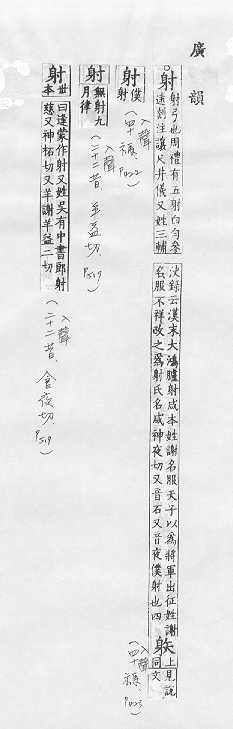 廣韻
射 射弓也周禮有五射白勾參
遠剡注讓尺井儀又姓三輔
決錄云漢末大鴻臚射咸本姓謝名服天子以為將軍出征姓謝
名服不祥改之爲射氏名咸神夜切又音石又音夜僕射也四
䠶 上同見說文
入聲
(四十禡, P423)
射 僕射
入聲
(四十禡 P422)
射 無射九
月律
入聲
(二十二昔, 羊益切. P519)
射 世本
曰逢蒙作射又姓吳有中書郎射
慈又神柘切又羊謝羊益二切
入聲
(二十二昔, 食夜切. P519)